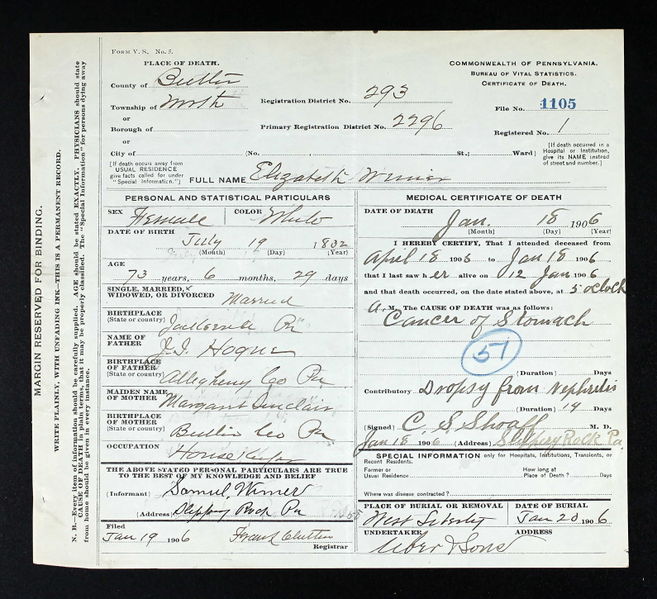 FORM V. S. No. 5.
PLACE OF DEATH.
County of Butler
Township of Worth
or
Borough of
or
City of (No. St.; Ward)
Registration District No. 293
Primary Registration District No. 2296
COMMONWEALTH OF PENNSYLVANIA.
BUREAU OF VITAL STATISTICS.
CERTIFICATE OF DEATH.
File No. 1105
Registered No. 1
[If death occurs away from USUAL RESIDENCE give facts called for under "Special Information."]
[If death occurred in a Hospital or Institution, give its NAME instead of street and number.]
FULL NAME Elizabeth Wimer
PERSONAL AND STATISTICAL PARTICULARS
SEX Female COLOR White
DATE OF BIRTH July 19 1832
(Month) (Day) (Year)
AGE
73 years, 6 months, 29 days
SINGLE, MARRIED,
WIDOWED, OR DIVORCED Married
BIRTHPLACE
(State or country) Jacksville Pa
NAME OF
FATHER J. I. Hogue
BIRTHPLACE
OF FATHER
(State or country) Allegheny Co Pa
MAIDEN NAME
OF MOTHER Margaret
BIRTHPLACE
OF MOTHER
(State or country) Butler Co Pa
OCCUPATION House
THE ABOVE STATED PERSONAL PARTICULARS ARE TRUE
TO THE BEST OF MY KNOWLEDGE AND BELIEF
(Informant) Samuel Wimer
(Address) Slippery Rock Pa
Filed
Jan 19 1906 Frank
Registrar
MEDICAL CERTIFICATE OF DEATH
DATE OF DEATH Jan. 18 1906
(Month) (Day) (Year)
I HEREBY CERTIFY, That I attended deceased from
April 18 1905 to Jan 18 1906
that I last saw her alive on 12 Jan 1906
and that death occurred, on the date stated above, at 5 oclock
A. M. The CAUSE OF DEATH was as follows:
Cancer of Stomach
57
(Duration) Days
Contributory Dropsy from Nephritis
(Duration) 14 Days
(Signed) C. S. Shoaff M. D.
Jan 18 1906 (Address) Slippery Rock Pa.
SPECIAL INFORMATION only for Hospitals, Institutions, Transients, or
Recent Residents.
Former or
Usual Residence
How long at
Place of Death? Days
Where was disease contracted?
PLACE OF BURIAL OR REMOVAL
West Liberty
DATE OF BURIAL
Jan 20 1906
UNDERTAKER
Uber & Sons
ADDRESS
MARGIN RESERVED FOR BINDING.
WRITE PLAINLY, WITH UNFADING INK—THIS IS A PERMANENT RECORD.
N. B.—Every item of information should be carefully supplied. AGE should be stated EXACTLY. PHYSICIANS should state
CAUSE OF DEATH in plain terms, that it may be properly classified. The "Special Information" for persons dying away
from home should be given in every instance.